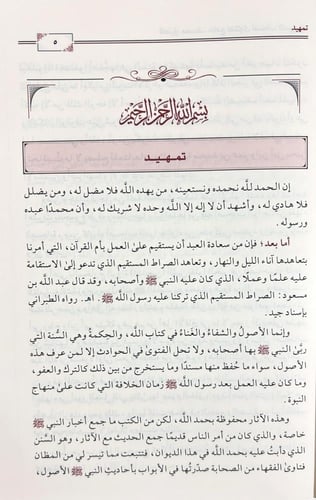 تمهيد
٥
بسم الله الرحمن الرحيم
تمهيد
إن الحمد للَّه نحمده ونستعينه، من يهده اللَّه فلا مضل له، ومن يضلل
فلا هادي له، وأشهد أن لا إله إلا اللَّه وحده لا شريك له، وأن محمدًا عبده
ورسوله.
أما بعد؛ فإن من سعادة العبد أن يستقيم علىٰ العمل بأم القرآن، التي أمرنا
بتعاهدها آناء الليل والنهار، وتعاهد الصراط المستقيم الذي تدعو إلىٰ الاستقامة
عليه علمًا وعملًا، الذي كان عليه النبي ﷺ وأصحابه، وقد قال عبد اللَّه بن
مسعود: الصراط المستقيم الذي تركنا عليه رسول اللَّه ﷺ. اهـ. رواه الطبراني
بإسناد جيد.
وإنما الأصولُ والشفاءُ والغَناءُ في كتاب اللَّه، والحِكمةُ وهي السُّنة التي
ربَّىٰ النبي ﷺ بها أصحابه، ولا تحل الفتوىٰ في الحوادث إلا لمن عرف هذه
الأصول، سواء ما حُفظ منها مسندًا وما يستخرج من بين ذلك كالترك والعفو،
وما كان عليه العمل بعد رسول اللَّه ﷺ زمان الخلافة التي كانت علىٰ منهاج
النبوة.
وهذه الآثار محفوظة بحمد اللَّه، لكن من الكتب ما جمع أخبار النبي ﷺ
خاصة، والذي كان من أمر الناس قديمًا جمع الحديث مع الآثار، وهو السَّنن
الذي دأبتُ عليه بحمد اللَّه في هذا الديوان، فتتبعت مما تيسر لي من المظان
فتاوىٰ الفقهاء من الصحابة صدّرتُها في الأبواب بأحاديث النبي ﷺ الأصول،